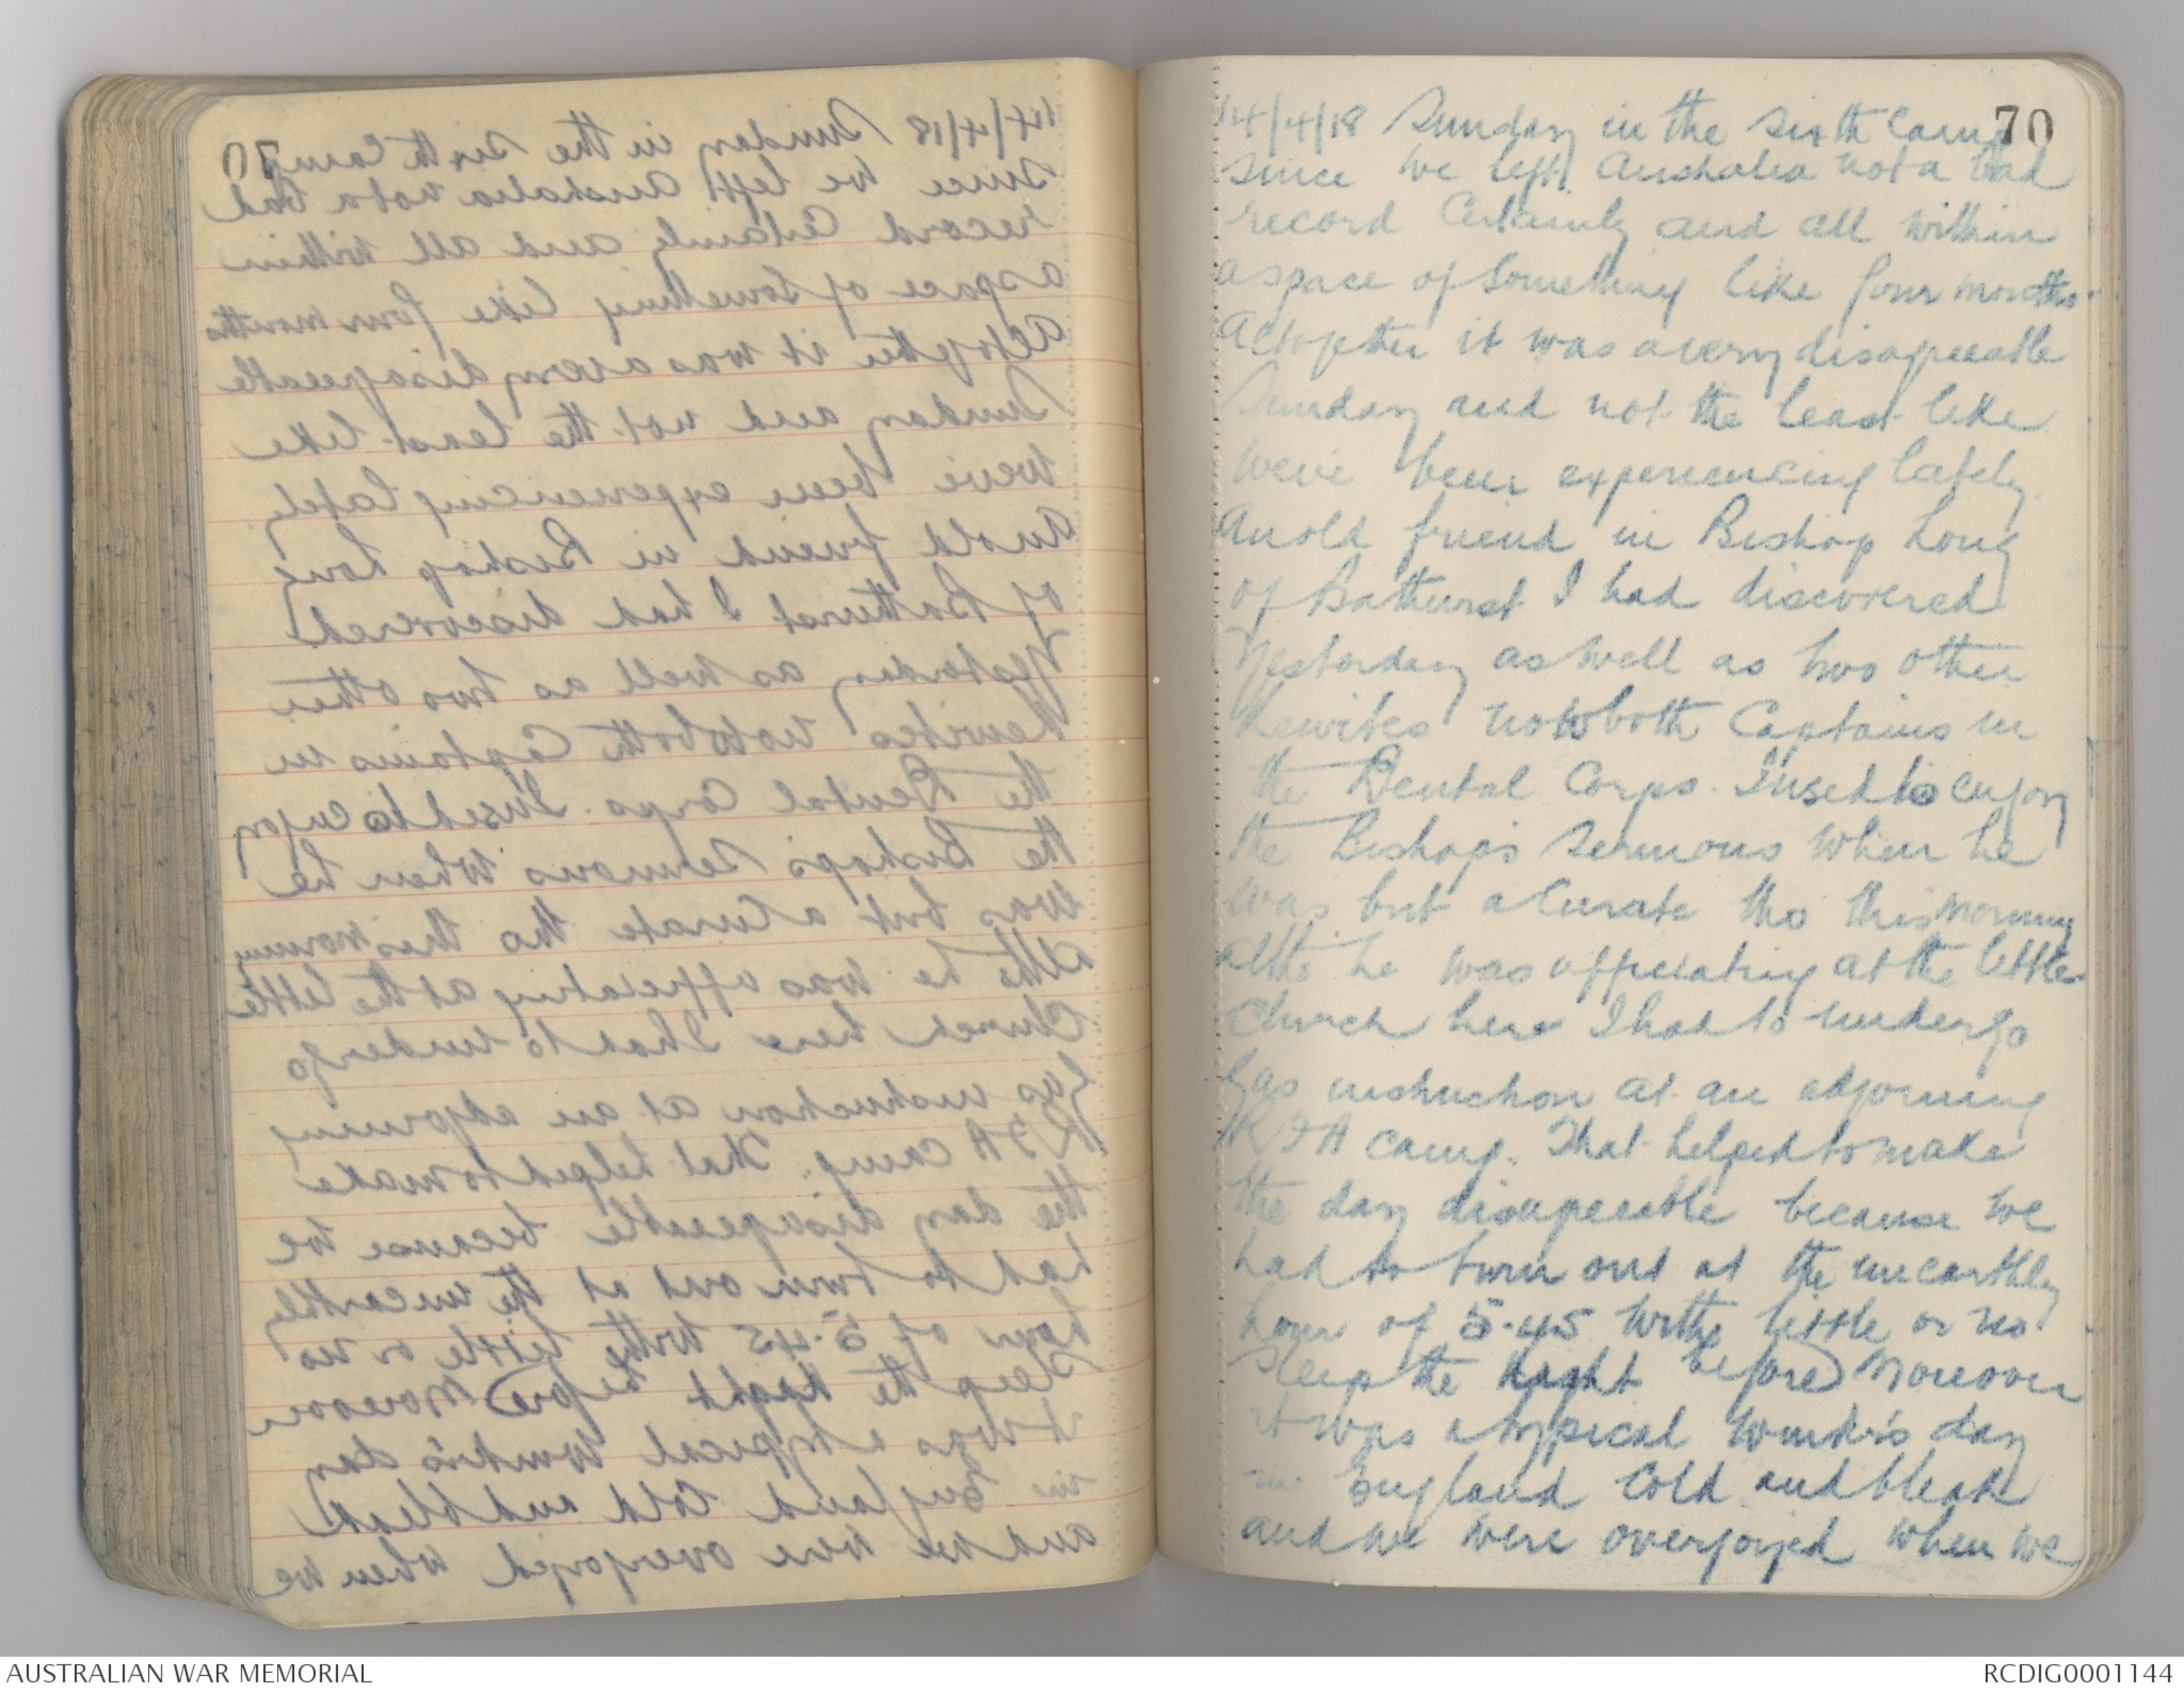 70
14/4/18 Sunday in the sixth Camp
since we left Australia not a bad
record Certainly and all within
a space of something like four months.
Altogether it was a very disagreeable
Sunday and not the least like
we've been experiencing lately.
An old friend in Bishop Long
of Bathurst I had discovered
Yesterday as well as two other
now both Captains in
the Dental Corps. I used to enjoy
the Bishop's Sermons when he
was but a Curate tho this morning
altho he was officiating at the little
Church here I had to undergo
Gas instruction at an adjoining
RFA camp. That helped to make
the day disagreeable because we
had to turn out at the unearthly
hour of 5.45 with little or no
sleep the night before Moreover
it was a typical winter's day
in England Cold and bleak
and we were overjoyed when we
AUSTRALIAN WAR MEMORIAL
RCDIG0001144